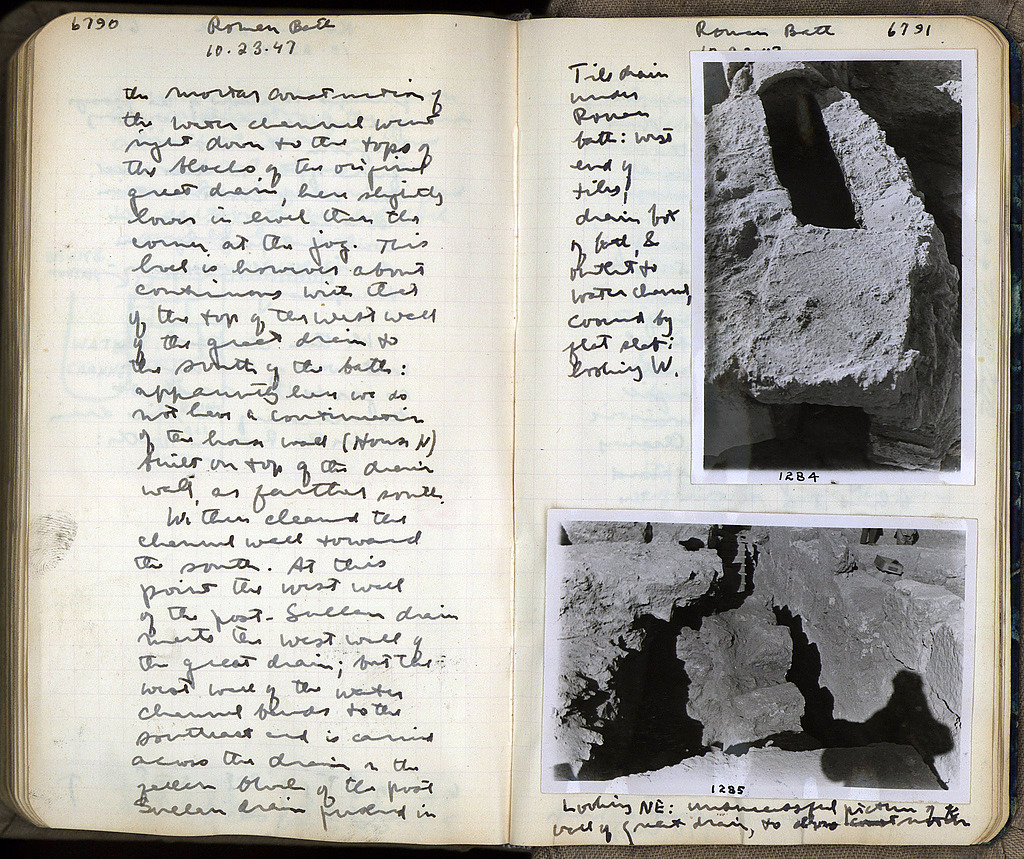 6790 Roman Bath
10.23.47
the mortar construction of
the water channel went
right down to the tops of
the blocks of the original
great drain, here slightly
lower in level than the
corner at the jog. This
level is however about
continuous with that
of the top of the west wall
of the great drain to
the south of the bath:
apparently here we do
not have a continuation
of the house wall (House N)
built on top of the drain
wall, as farther south.
We then cleaned the
channel well toward
the south. At this
point the west wall
of the post-Sullan drain
meets the west wall of
the great drain; but the
west wall of the water
channel bends to the
southeast and is carried
across the drain on the
fallen blocks of the post
Sullan drain packed in
Roman Bath 6791
10.23.47
Tile drain
under
Roman
bath: west
end of
tiles,
drain box
of bath, &
outlet to
water channel,
covered by
flat slab:
looking W.
1284
1285
Looking NE: unsuccessful picture of the
wall of great drain, to show construction